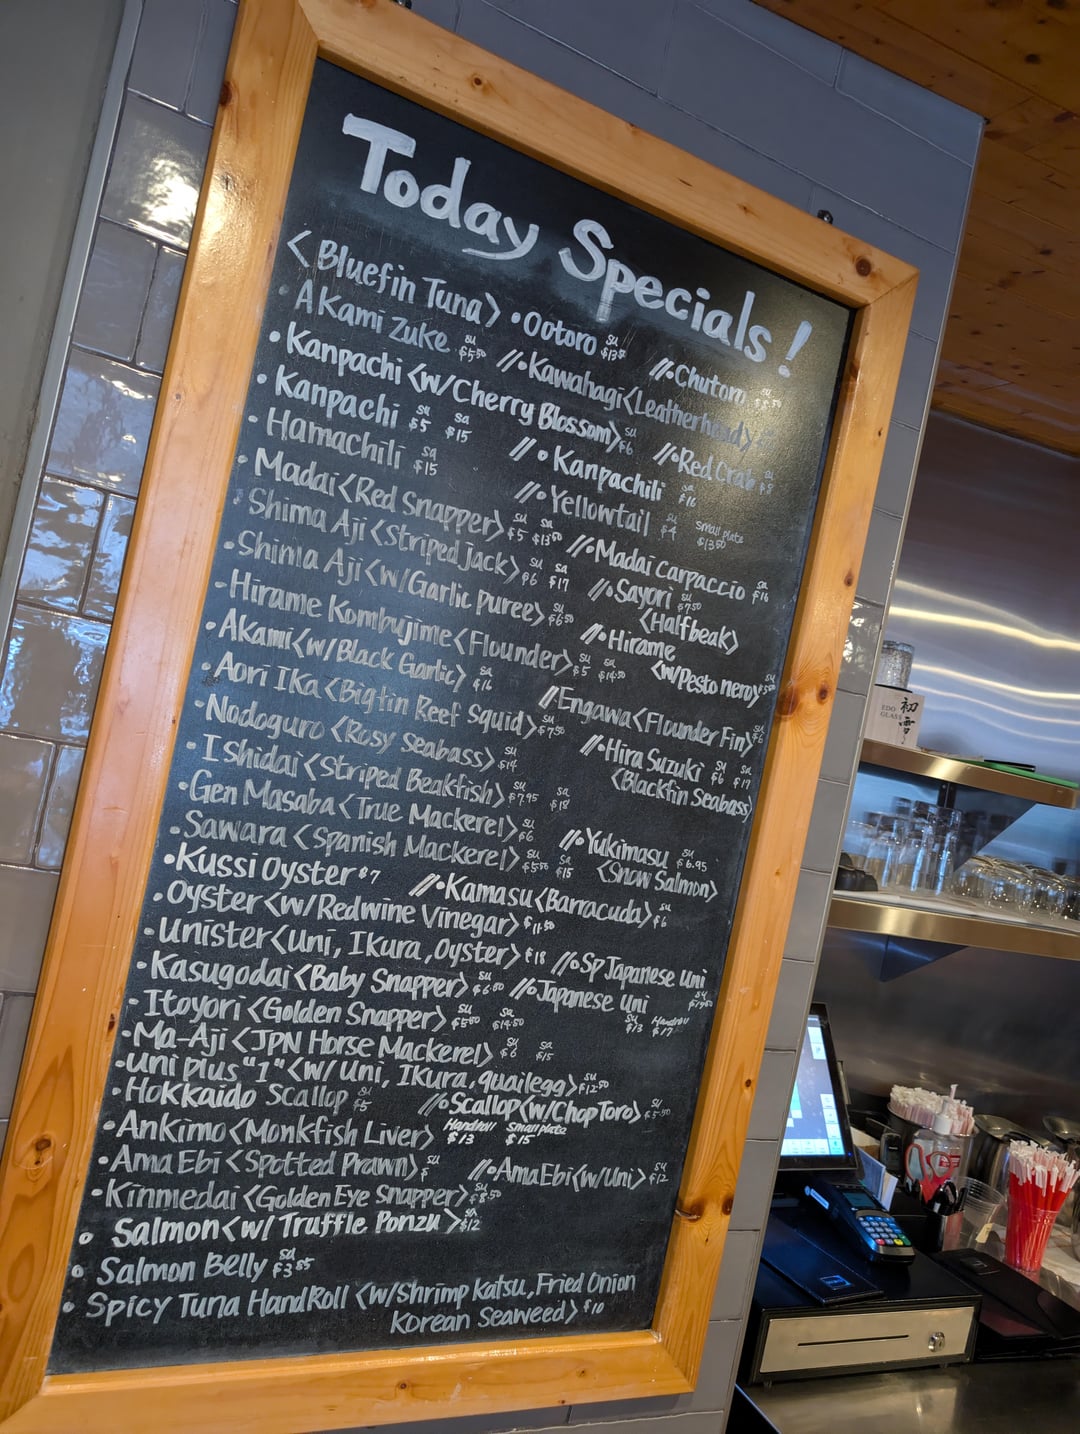 Today Specials!
<Bluefin Tuna> •Ootoro su //•Chutoro su
Akami Zuke su $5.50 //•Kawahagi<Leatherhead>
•Kanpachi <w/Cherry Blossom> su $6 //•Red Crab
•Kanpachi su $5 sa $15 //•Kanpachili sa $16
•Hamachili sa $15 //•Yellowtail su $4 small plate $13.50
•Madai<Red Snapper> su $5 sa $13.50 //•Madai Carpaccio sa $16
•Shima Aji<Striped jack> su $6 sa $17 //•Sayori su $7.50
<Halfbeak>
•Shima Aji<w/Garlic Puree> su $6.50 //•Hirame
<w/Pesto nero> su
•Hirame Kombujime<Flounder> su $5 sa $14.50
•Akami<w/Black Garlic> sa $16 //Engawa<Flounder Fin> su $6
•Aori Ika<Bigfin Reef Squid> su $7.50 //•Hira Suzuki su $6 sa $17
<Blackfin Seabass>
•Nodoguro <Rosy Seabass> su $14
•Ishidai<Striped Beakfish> su $7.95 sa $18
•Gen Masaba<True Mackerel> su $6 //•Yukimasu su $6.95
<Snow Salmon>
•Sawara <Spanish Mackerel> su $5.50 sa $15
•Kussi Oyster $7 //•Kamasu<Barracuda> su $6
•Oyster<w/Redwine Vinegar> $11.50
•Unister<Uni, Ikura, Oyster> $18 //•Sp Japanese Uni su
•Kasugodai<Baby Snapper> su $6.50 //•Japanese Uni su $13 Handroll $17
•Itoyori<Golden Snapper> su $5.50 sa $14.50
•Ma-Aji<JPN Horse Mackerel> su $6 sa $15
•Uni plus "1"<w/Uni, Ikura, quailegg> su $12.50
•Hokkaido Scallop su $5 //•Scallop<w/Chop Toro> su $5.50
•Ankimo<Monkfish Liver> Handroll $13 Small plate $15
•Ama Ebi<Spotted Prawn> su $ //•Ama Ebi<w/Uni> su $12
•Kinmedai<Golden Eye Snapper> su $8.50
• Salmon<w/Truffle Ponzu> sa $12
• Salmon Belly su
• Spicy Tuna HandRoll <w/Shrimp Katsu, Fried Onion
Korean Seaweed> $10
EDO
GLASS
初雪